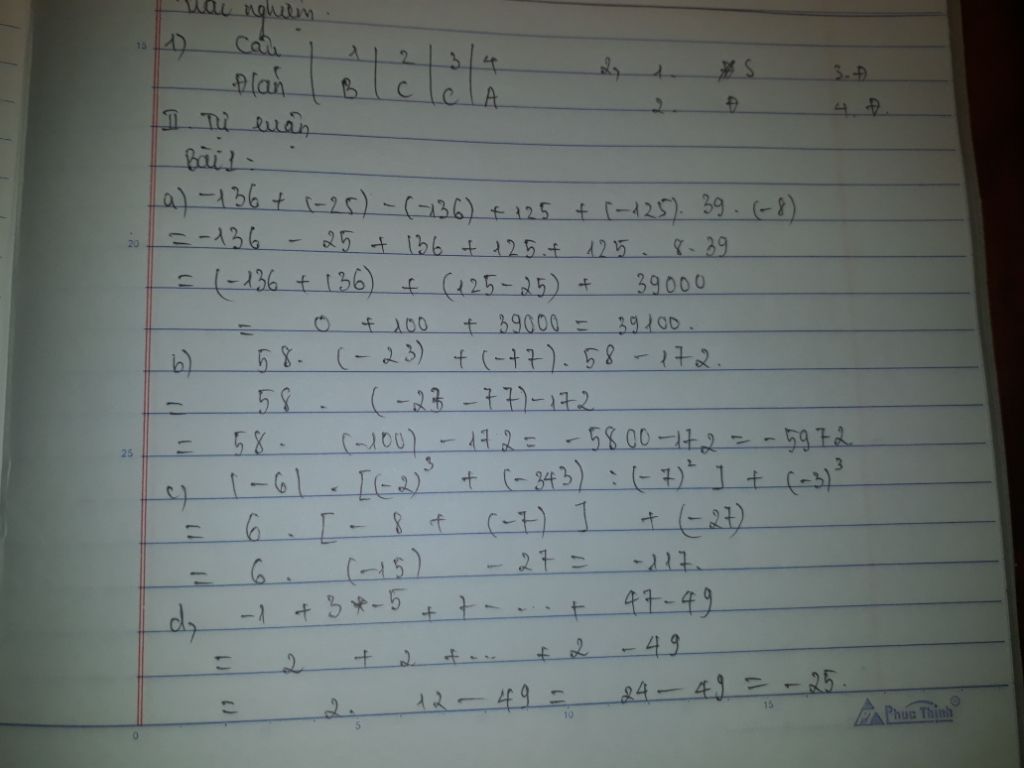 nghiệm.
1) Câu 1 2 3 4 2, 1. S 3. Đ
Đ/án B C C A 2. Đ 4. Đ.
II Tự luận
Bài 1:
a) -136 + (-25) - (-136) + 125 + (-125). 39. (-8)
= -136 - 25 + 136 + 125 + 125. 8. 39
= (-136 + 136) + (125 - 25) + 39000
= 0 + 100 + 39000 = 39100.
b) 58. (-23) + (-77). 58 - 172.
= 58. (-23 - 77) - 172
= 58. (-100) - 172 = -5800 - 172 = -5972
c) |-6|. [(-2)³ + (-343) : (-7)²] + (-3)³
= 6. [-8 + (-7)] + (-27)
= 6. (-15) - 27 = -117.
d, -1 + 3 - 5 + 7 - ... + 47 - 49
= 2 + 2 + ... + 2 - 49
= 2. 12 - 49 = 24 - 49 = -25.
Phúc Thịnh